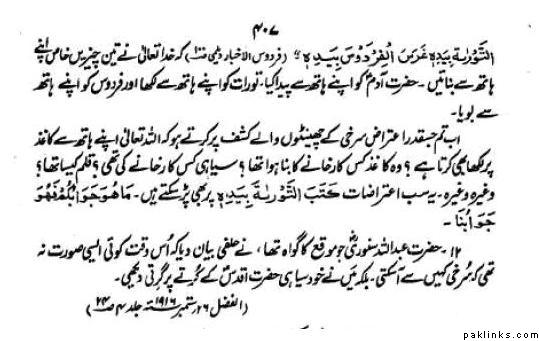 ۴۰۷
التَّوْرٰىةَ بِيَدِهٖ غَرَسَ الْفِرْدَوْسَ بِيَدِهٖ" (فردوس الاخبار دیلمی) کہ خدا تعالیٰ نے تین چیزیں خاص اپنے
ہاتھ سے بنائیں ۔ حضرت آدمؑ کو اپنے ہاتھ سے پیدا کیا۔ تورات کو اپنے ہاتھ سے لکھا اور فردوس کو اپنے ہاتھ
سے بویا۔
اب تم جسقدر اعتراض سرخی کے چھینٹوں والے کشف پر کرتے ہو کہ اللہ تعالیٰ اپنے ہاتھ سے کاغذ
پر لکھا بھی کرتا ہے ؟ وہ کاغذ کس کارخانے کا بنا ہوا تھا ؟ سیاہی کس کارخانے کی تھی ؟ قلم کیسا تھا ؟
وغیرہ وغیرہ ۔ یہ سب اعتراضات كَتَبَ التَّوْرٰىةَ بِيَدِهٖ پر بھی پڑ سکتے ہیں ۔ مَا هُوَ جَوَابُكُمْ فَهُوَ
جَوَابُنَا ۔
۱۲ ۔ حضرت عبداللہ سنوریؓ جو موقع کا گواہ تھا ، نے حلفی بیان دیا کہ اُس وقت کوئی ایسی صورت نہ
تھی کہ سُرخی کہیں سے آسکتی ۔ بلکہ میں نے خود سیاہی حضرت اقدسؑ کے کُرتے پر گرتی دیکھی ۔
(الفضل ۲۶ ستمبر ۱۹۱۶ء جلد ۴ ص۲۴)
paklinks.com